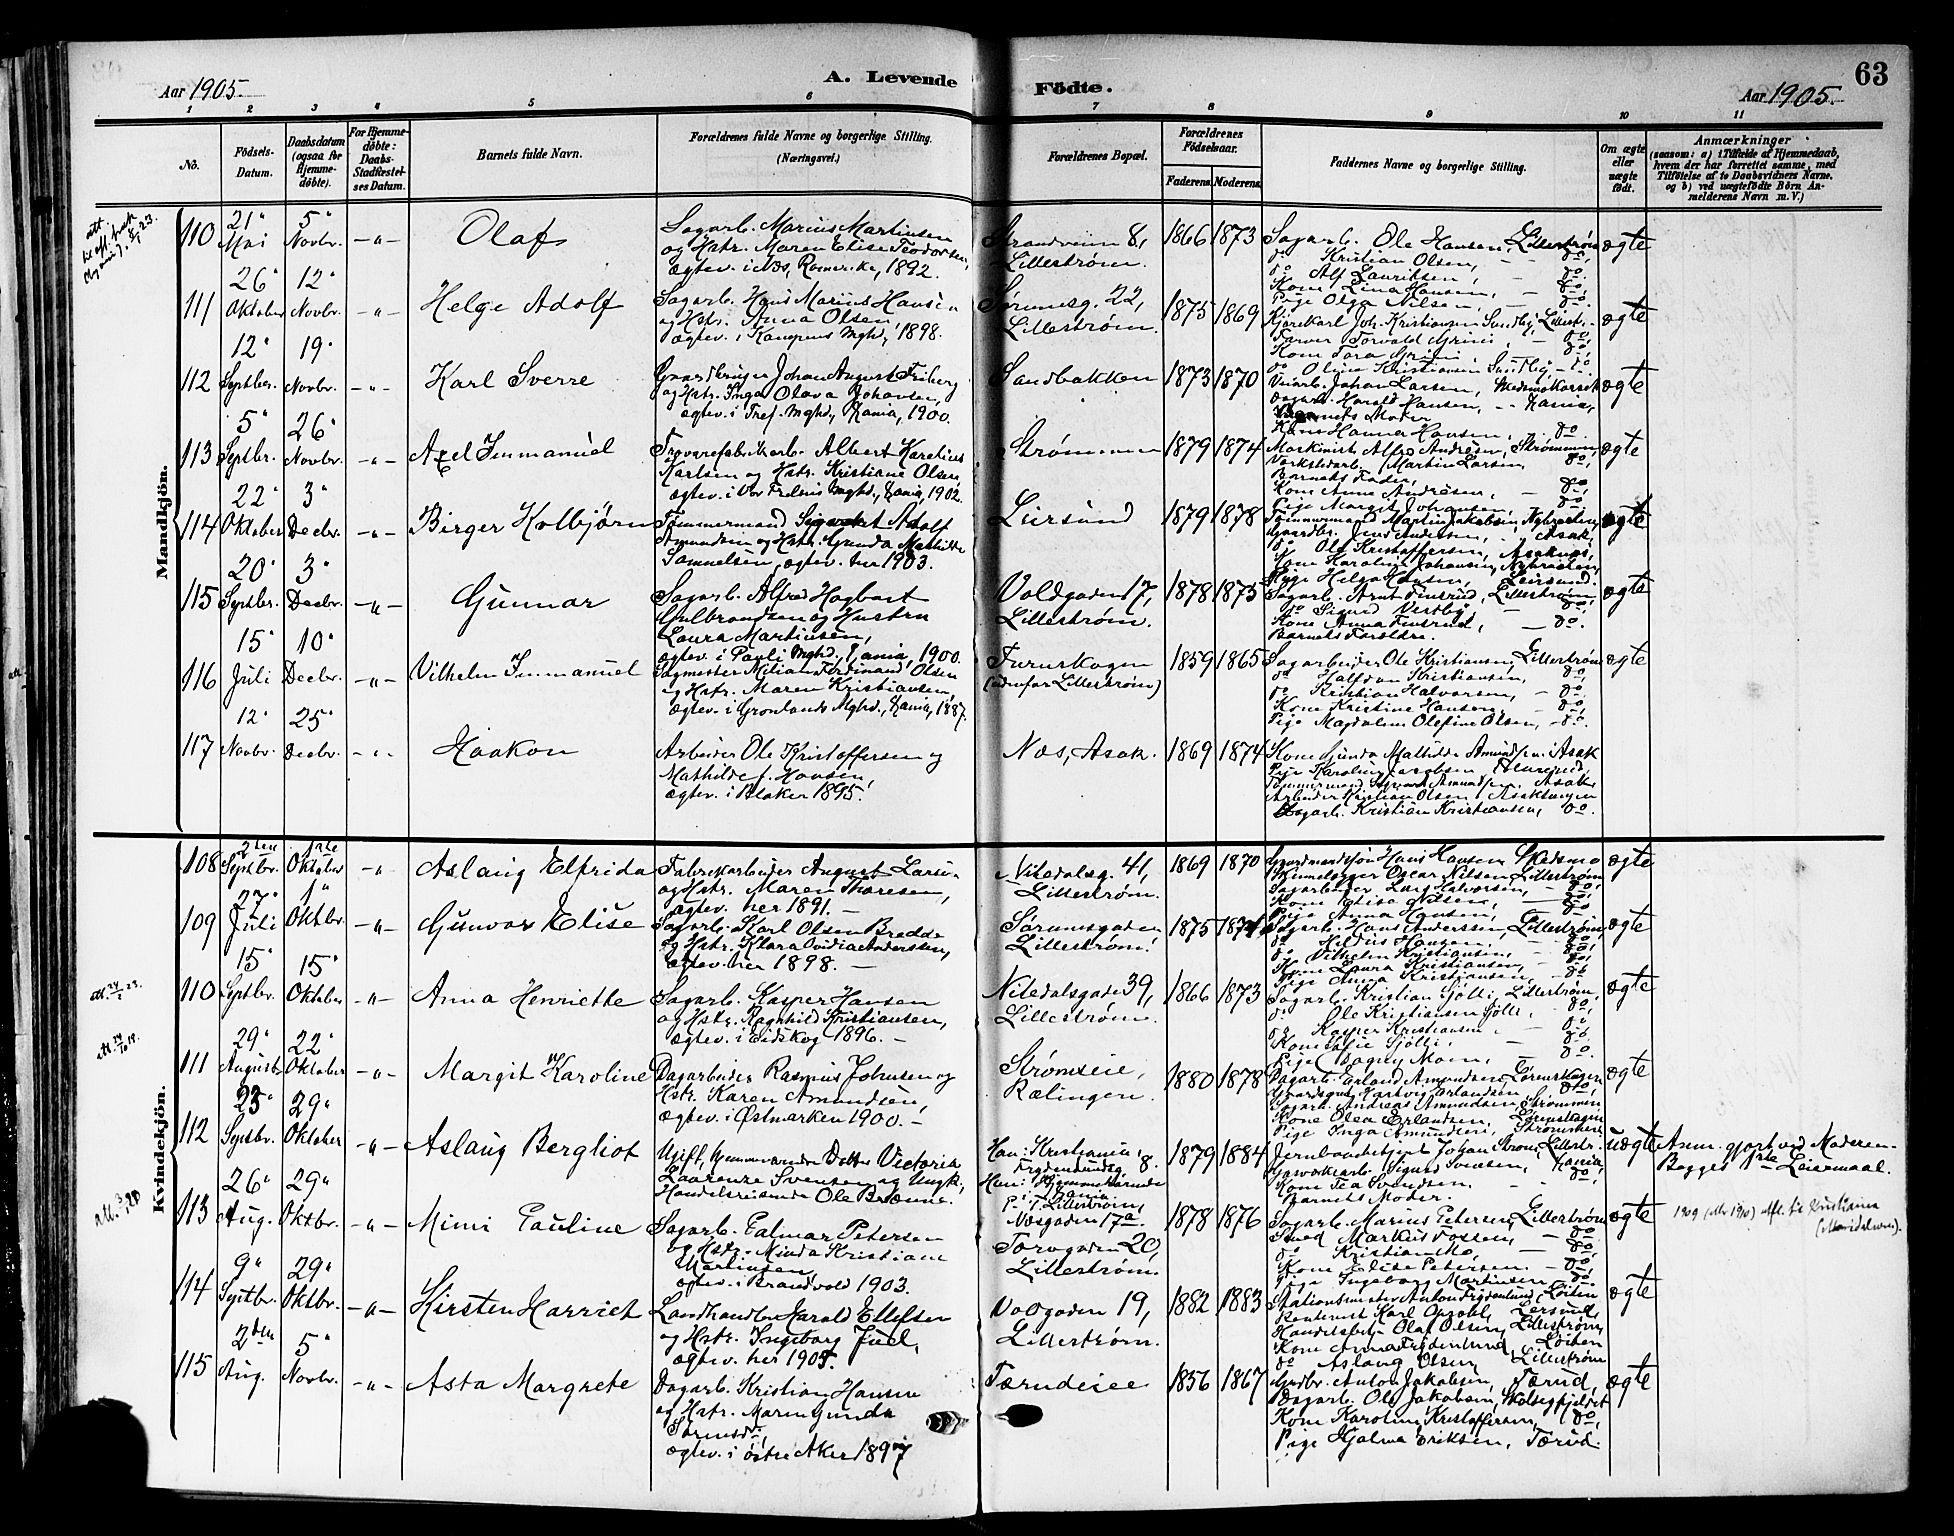 63
A. Levende Födte.
Aar 1905.
Aar 1905.
1 2 3 4 5 6 7 8 9 10 11
No.
Födsels-Datum.
Daabsdatum (ogsaa for Hjemme-döbte).
For Hjemme-döbte: Daabs-Stadfæstel-ses Datum.
Barnets fulde Navn.
Forældrenes fulde Navne og borgerlige Stilling.
(Næringsvei.)
Forældrenes Bopæl.
Forældrenes Födselsaar.
Faderens. Moderens.
Faddernes Navne og borgerlige Stilling.
Om ægte eller uægte födt.
Anmærkninger
(saasom: a) i Tilfælde af Hjemmedaab, hvem der har forrettet samme, med Tilföielse af to Daabsvidners Navne, og b) ved uægtefödte Börn An-melderens Navn m. V.)
Mandkjön.
110 21" Mai 5" Novbr. -"- Olaf
Sagarb. Marius Martinsen
og Hstr. Maren Elise Todorsen,
ægtev. i Næs, Romerike, 1892.
Strandveien 8, Lillestrøm. 1866 1873
Sagarb. Ole Hansen, Lillestrøm
do Kristian Olsen, - do.
do Alf Lauritsen, - do.
Kone Lina Hansen, - do.
Pige Olga Nilsen, - do.
ægte
111 26" Oktober 12" Novbr. -"- Helge Adolf
Sagarb. Hans Marius Hansen
og Hstr. Anna Olsen,
ægtev. i Kampens Mghd, 1898.
Sørumsg. 22, Lillestrøm. 1875 1869
Kjørekarl Joh. Kristiansen Sundby, Lillestr.
Farver Torvald Grini, - do,
Kone Tora Grini, - do,
do Oline Kristiansen Sundby, - do.
ægte
112 12" Septbr. 19" Novbr. -"- Karl Sverre
Gaardbruger Johan August Friberg
og Hstr. Inga Olava Johansen,
ægtev. i Tref. Mghd, Kania, 1900.
Sandbakken 1873 1870
Veiarb. Johan Larsen, Skedsmokorset
Dagarb. Harald Hansen, - Kania,
Barnets Moder
Kone Hanna Hansen, - do.
ægte
113 5" Septbr. 26" Novbr. -"- Axel Immanuel
Trævarefabrikarb. Albert Karelius
Karlsen og Hstr. Kristiane Olsen,
ægtev. i Vor Frelsers Mghd, Kania, 1902.
Strømmen 1879 1874
Maskinist Alfred Andrésen, Strømmen
Verkstedarb. Martin Larsen, do,
Barnets Fader,
Kone Anna Andrésen, - do.
Pige Margit Johansen, - do.
ægte
114 22" Oktober 3" Decbr. -"- Birger Kolbjørn
Tømmermand Sigvart Adolf
Amundsen og Hstr. Gunda Mathilde
Samuelsen, ægtev. her 1903.
Leirsund 1879 1878
Tømmermand Martin Jakobsen, Nybraaten,
Gaardbr. Jens Andersen, - Asak,
do Ole Kristoffersen, Asaknæs,
Kone Karoline Johansen, Nybraaten,
Pige Helga Hansen, Leirsund.
ægte
115 20" Septbr. 3" Decbr. -"- Gunnar
Sagarb. Alfred Hagbart
Gulbrandsen og Hustru
Laura Martinsen,
ægtev. i Pauli Mghd. Kania, 1900.
Voldgaden 17, Lillestrøm. 1878 1875
Sagarb. Arnt Finsrud, Lillestrøm,
do Sigurd Vestby, - do,
Kone Anna Finsrud, - do.
Barnets Forældre.
ægte
116 15" Juli 10" Decbr. -"- Vilhelm Immanuel
Sagmester Milian Ferdinand Olsen
og Hstr. Maren Kristiansen,
ægtev. i Grønlands Mghd., Kania, 1887.
Furuskogen (udenfor Lillestrøm) 1859 1865
Sagarbeider Ole Kristiansen, Lillestrøm
do Halfdan Kristiansen, do,
do Kristian Halvorsen, - do.
Kone Kristine Hansen, - do,
Pige Magdalene Olefine Olsen, - do.
ægte
117 12" Novbr. 25" Decbr. -"- Haakon
Arbeider Ole Kristoffersen og
Mathilde f. Hansen,
ægtev. i Blaker 1895.
Næs, Asak. 1869 1874
Kone Gunda Mathilde Amundsen i Asak
Pige Karoline Jacobsen
Tømmermand Sigvart Amundsen, Asak,
Arbeider Kristian Olsen, Asakeangen
Dagarb. Kristian Kristiansen, do.
Kvindekjön.
108 2den Septbr. 1ste Oktober -"- Aslaug Elfrida
Fabrikarbeider August Larsen
og Hstr. Maren Thoresen,
ægtev. her 1891.-
Nitedalsg. 41, Lillestrøm. 1869 1870
Gaardmandssøn Hans Hansen, Skedsmo
Oscar Nilsen, Lillestrøm
Sagarbeider Lars Halvorsen, - do,
Kone Elise Nilsen, - do,
Pige Anna Hansen, - do
ægte
109 27" Juli 1" Oktbr. -"- Gunvor Elise
Sagarb. Karl Olsen Bredde
og Hstr. Klara Ovidia Anderssen,
ægtev. her 1898.-
Sørumsgaden Lillestrøm. 1875 1874
Sagarb. Hans Anderssen, Lillestrøm,
do Hansen, - do,
do Vilhelm Kristiansen, - do,
Kone Laura Kristiansen, - do
Pige Anna Kristiansen, - do
ægte
110 15" Septbr. 15" Oktober -"- Anna Henriette
Sagarb. Kasper Hansen
og Hstr. Ragnhild Kristiansen,
ægtev. i Eidskog 1896.-
Nitedalsgade 39, Lillestrøm. 1866 1873
Sagarb. Kristian Sjølli, Lillestrøm,
do Ole Kristiansen Sjølli, - do,
do Kasper Kristiansen, - do.
Kone Sjølli, - do.
Pige Dagny Moen, - do.
ægte
111 29" August 22" Oktober -"- Margit Karoline
Dagarbeider Rasmus Johnsen og
Hstr. Karen Amundsen,
ægtev. i Østmarken 1900.-
Strømseie, Rælingen. 1880 1878
Dagarb. Erland Amundsen, Lørenskogen
Gaardsgut Hartvig Erlandsen, do,
Sagarb. Andreas Amundsen, Strømmen
Kone Olea Erlandsen, Lørenskogen
Pige Inga Amundsen, Strømseie
ægte
112 23" Septbr. 29" Oktober -"- Aslaug Bergliot
Ugift, hjemmeværende Datter Victoria
Laurenze Svensen og Ungk.
Handelsreisende Ole Brænne.
Han: Kristiania, 8.
Hun: Hjemmehørende i Kania
p. T. Lillestrøm,
Næsgaden 17a.
1879 1884
Jernbanebetjent Johan Strøm, Lillestr.
Sigurd Svensen, Kania,
Kone Tea Svendsen, - do.
Barnets Moder.
uægte
Anm. gjort ved Moderen-
Begges 1ste Leiermaal.
113 26" Aug. 29" Oktbr. -"- Mimi Pauline
Sagarb. Palmar Petersen
og Hstr. Minda Kristiane
Martinsen,
ægtev. i Brandvold 1903.
Torvgaden 20, Lillestrøm. 1878 1876
Sagarb. Marius Petersen, Lillestrøm
Smed Markus Fossen, - do,
do Kristian Mo, - do,
Kone Elise Petersen, - do,
Pige Ingeborg Martinsen, do
ægte
1909 afl. til Kristiania
(Maridalen).
114 9" Septbr. 29" Oktbr. -"- Kirsten Harriet
Landhandler Harald Ellefsen
og Hstr. Ingeborg Juel,
ægtev. her 1905.
Volgaden 19, Lillestrøm. 1882 1883
Stationsmester Anton Frydenlund, Løiten
Karl Opsahl, Lersund,
Handelsbetj. Olaf Olsen, Lillestrøm,
Kone Anna Frydenlund, Løiten
do Aslaug Olsen, Lillestrøm
ægte
115 2den Aug. 5" Novbr. -"- Asta Margrete
Dagarb. Kristian Hansen
og Hstr. Maren Gunda
ægtev. i Østre Aker 1897
Tærudeie 1856 1867
Gardbr. Anton Jakobsen, Tærud,
Dagarb. Ole Jakobsen,
Kone Karoline Kristoffersen, do,
Pige Hjalma Eriksen, Tærud.
ægte